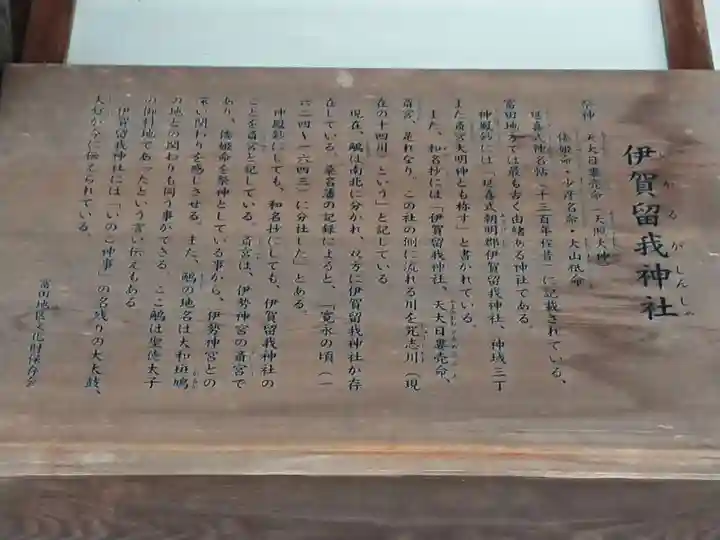 伊賀留我神社
いかるがじんじゃ
祭神 天大日孁売命(天照大神)
倭姫命・少彦名命・大山祇命
延喜式神名帖(千三百年程昔)に記載されている、
富田地方では最も古く由緒ある神社である。
神殿鈔には「延喜式朝明郡伊賀留我神社、神域三丁
また斎宮大明神とも称す」と書かれている。
また、和名抄には「伊賀留我神社、天大日孁売命、
斎宮、是れなり。この社の側に流れる川を 志川(現
在の十四川)という」と記している
現在、鵤は南北に分かれ、双方に伊賀留我神社が存
在している。桑名藩の記録によると、「寛永の頃(一
六二四〜一六四三)に分社した」とある。
神殿鈔にしても、和名抄にしても、伊賀留我神社の
ことを斎宮と記している。斎宮は、伊勢神宮の斎宮で
あり、倭姫命を祭神としている事から、伊勢神宮との
深い関わりを感じさせる。また、鵤の地名は大和斑鳩
の地との関わりも伺う事ができる。ここ鵤は聖徳太子
の御料地であったという言い伝えもある
伊賀留我神社には「いのこ神事」の名残りの大太鼓、
大 が今に伝えられている。
富田地区文化財保存会